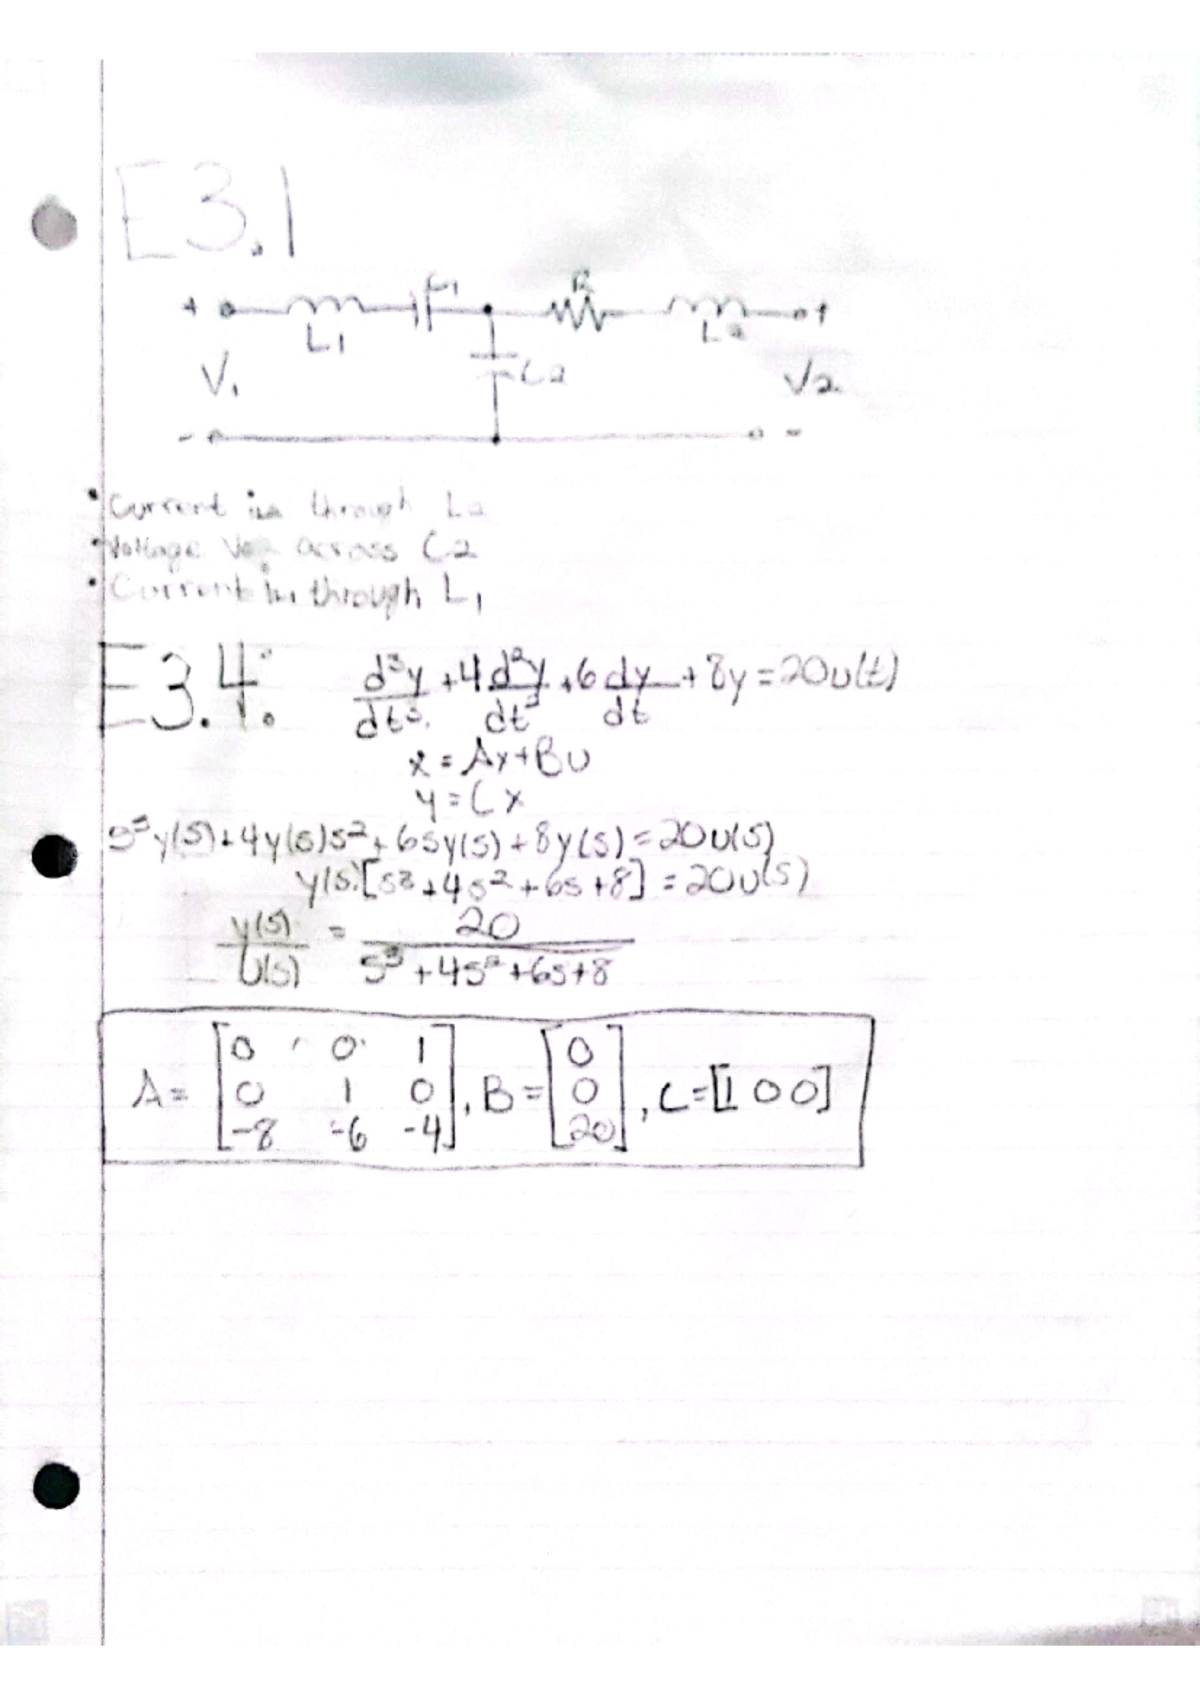 E3.1
+ L1 C1 R L2 +
V1 C2 V2
- -
• Current iL2 through L2
• Voltage Vc2 across C2
• Current iL1 through L1
E3.4. d³y/dt³ + 4 d²y/dt² + 6 dy/dt + 8y = 20u(t)
ẋ = Ax+Bu
y = Cx
s³y(s) + 4y(s)s² + 6sy(s) + 8y(s) = 20u(s)
y(s)[s³ + 4s² + 6s + 8] = 20u(s)
y(s)/U(s) = 20/(s³ + 4s² + 6s + 8)
A = [0 0 1; 0 1 0; -8 -6 -4], B = [0; 0; 20], C = [1 0 0]